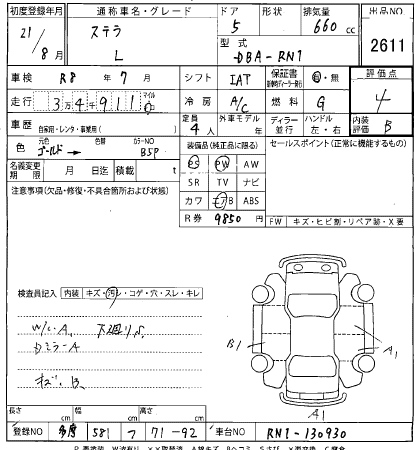 初度登録年月 通称車名・グレード ドア 形状 排気量 出品NO
21/8月 ステラ L 5 660cc 2611
型式 DBA-RN1
車検 R8年7月 シフト IAT 保証書 有・無 評価点 4
走行 34千911 マイル km 冷房 A/C 燃料 G
車歴 自家用・レンタ・事業用( ) 定員 4人 外車モデル 年 ディーラー・並行 ハンドル 左・右 内装評価 B
色 元色 ゴールド→ 色替 カラーNO B5P 装備品(純正品に限る) セールスポイント(正常に機能するもの)
名義変更期限 月 日迄 積載 t PS PW AW
注意事項(欠品・修復・不具合箇所および状態) SR TV ナビ
カワ エアB ABS
R券 9850
FW キズ・ヒビ割・リペア跡・X要
検査員記入 内装 キズ・汚レ・コゲ・穴・スレ・キレ
W/C・A,
Dミラー A
B1 A1
A1
長さ cm 幅 cm 高さ cm
登録NO 多摩 581 つ 71-92 車台NO RN1-130930